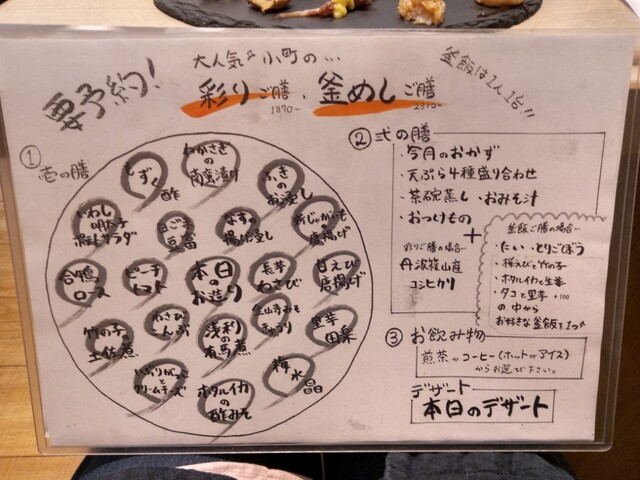 要予約!
大人気♪小町の…
彩りご膳、釜めしご膳
1870-
2370-
釜飯は1人1台!!
① 壱の膳
もずく酢
わかさぎの南蛮漬け
ふきのお浸し
いわし明太子ポテトサラダ
白ごま豆富
なすの揚げ浸し
新じゃがいも唐揚げ
合鴨ロース
ピーチトマト
本日のお造り
長芋わさび
甘えび唐揚げ
竹の子土佐煮
わさびこんぶ
浅利の有馬煮
金山寺みそきゅうり
里芋田楽
いぶりがっことクリームチーズ
ホタルイカの酢みそ
梅水晶
② 弐の膳
・今月のおかず
・天ぷら4種盛り合わせ
・茶碗蒸し ・おみそ汁
・おつけもの
+
彩りご膳の場合ー
丹波篠山産
コシヒカリ
釜飯ご膳の場合ー
・たい ・とりごぼう
・桜えびと竹の子
・ホタルイカと生姜
・タコと里芋 +100
の中から
お好きな釜飯を1つ
③ お飲み物
煎茶orコーヒー(ホットorアイス)
からお選び下さい。
デザート
本日のデザート